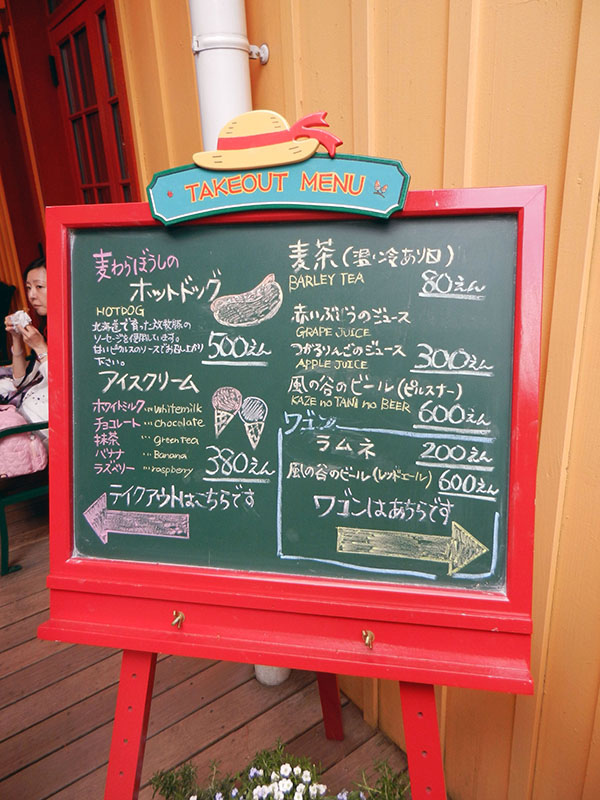 TAKEOUT MENU
麦わらぼうしの
ホットドッグ
HOTDOG
北海道で育った放牧豚の
ソーセージを使用しています。
甘いピクルスのソースでお召し上がり
下さい。
500えん
アイスクリーム
ホワイトミルク … whitemilk
チョコレート … chocolate
抹茶 … green tea
バナナ … Banana
ラズベリー … raspberry
380えん
テイクアウトはこちらです
麦茶(温・冷あり)
BARLEY TEA
80えん
赤いぶどうのジュース
GRAPE JUICE
つがるりんごのジュース
APPLE JUICE
300えん
風の谷のビール(ピルスナー)
KAZE no TANI no BEER
600えん
ワゴン
ラムネ
200えん
風の谷のビール(レッドエール)
600えん
ワゴンはあちらです